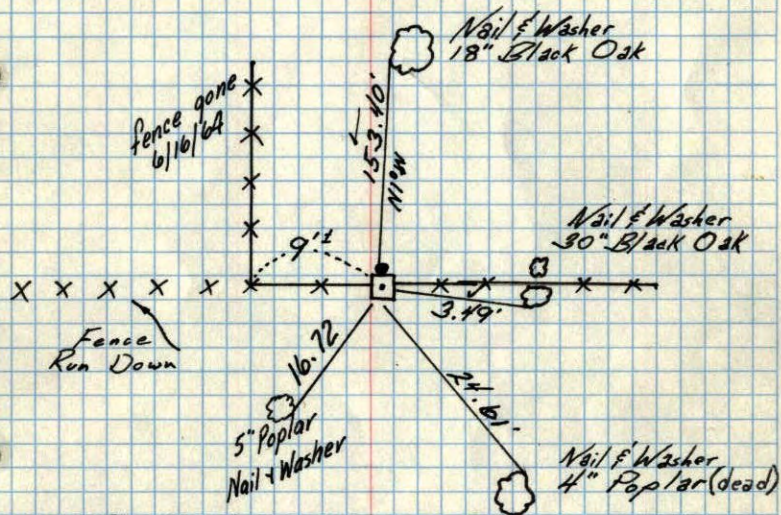 Nail & Washer
18" Black Oak
fence gone
6/16/64
153.40'
N1°W
Nail & Washer
30" Black Oak
9'±
3.49'
Fence
Run Down
16.72
24.61'
5" Poplar
Nail & Washer
Nail & Washer
4" Poplar (dead)